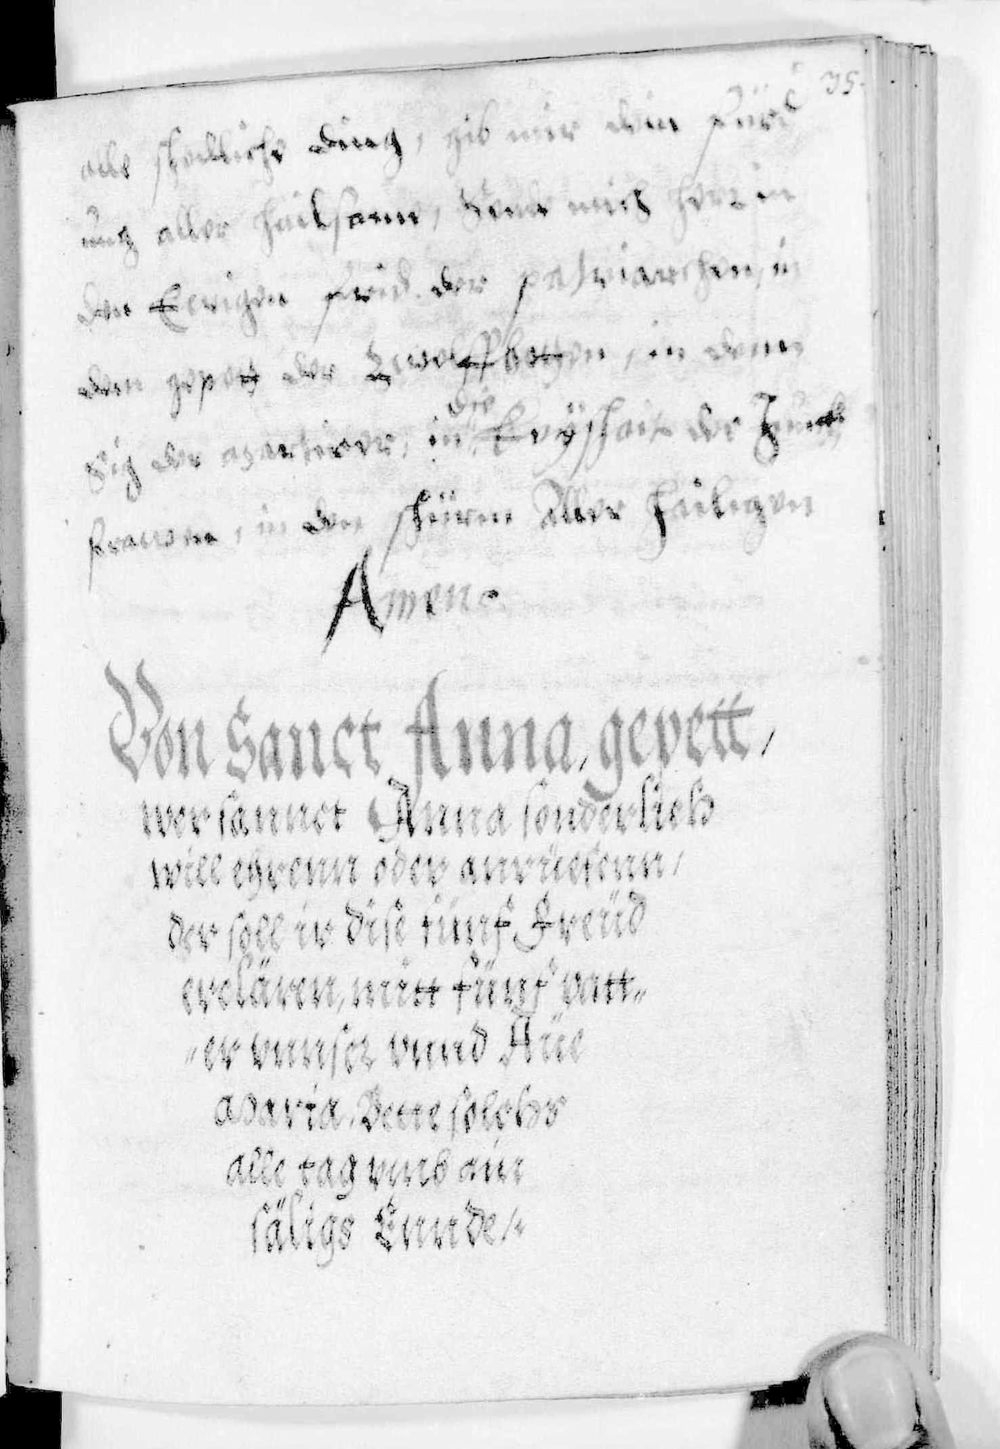 35.
alle schedliche ding, gib mir dein fürd
ung aller hailsamr, sende mich herr in
den Eewigen frid der patriarchen, in
dem gepett der Zwelffbotten, in dem
die
Sig der martirer, in der keyschait der Junck
frawen, in den schürm Aller hailigen
Amen.
Von Sanct Anna, gepett,
wer sannct Anna sonderlich
will ehrenn oder anrüefenn,
der soll ir dise fünf Freüd
erclären, mitt fünf patt"
"er vnnser vnnd Aüe
Maria. Bette solchs
alle tag vmb ain
säligs Ennde,